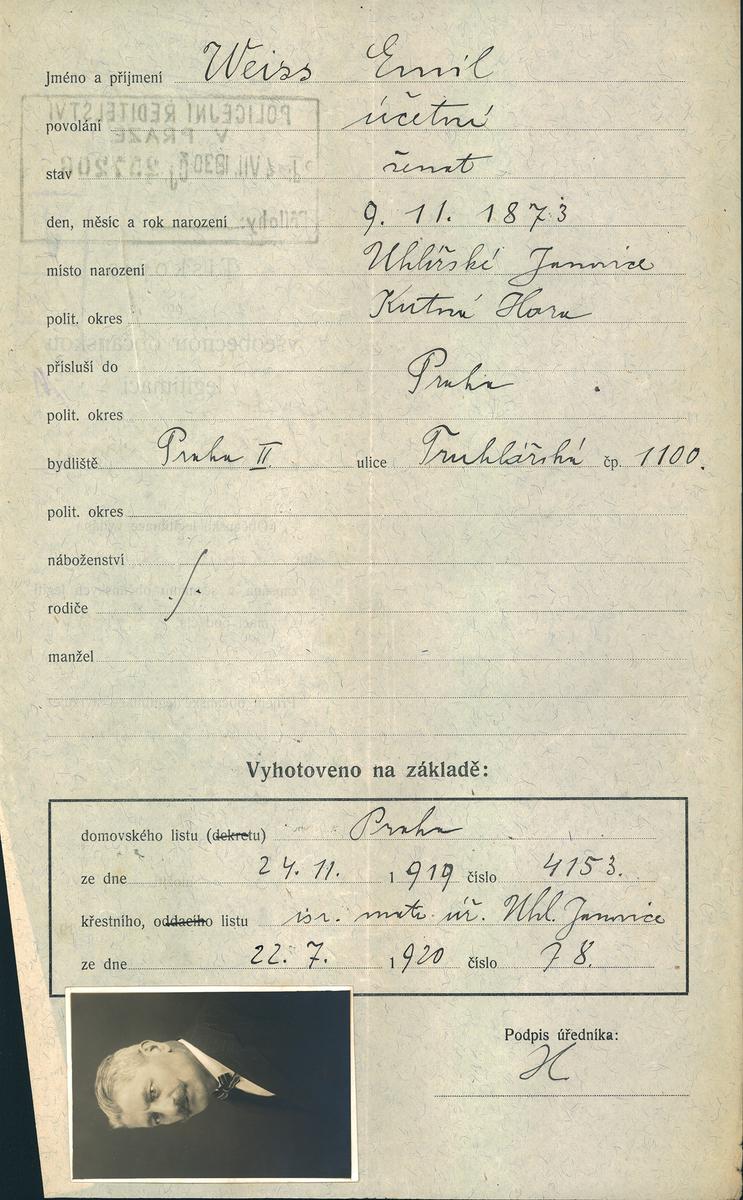 Jméno a příjmení Weiss Emil
povolání účetní
stav ženat
den, měsíc a rok narození 9. 11. 1873
místo narození Uhlířské Janovice
polit. okres Kutná Hora
přísluší do Praha
polit. okres
bydliště Praha II. ulice Truhlářská čp. 1100.
polit. okres
náboženství
rodiče
manžel
Vyhotoveno na základě:
domovského listu (dekretu) Praha
ze dne 24. 11. 1919 číslo 4153.
křestního, oddacího listu isr. matr. úř. Uhl. Janovice
ze dne 22. 7. 1920 číslo 78.
Podpis úředníka: